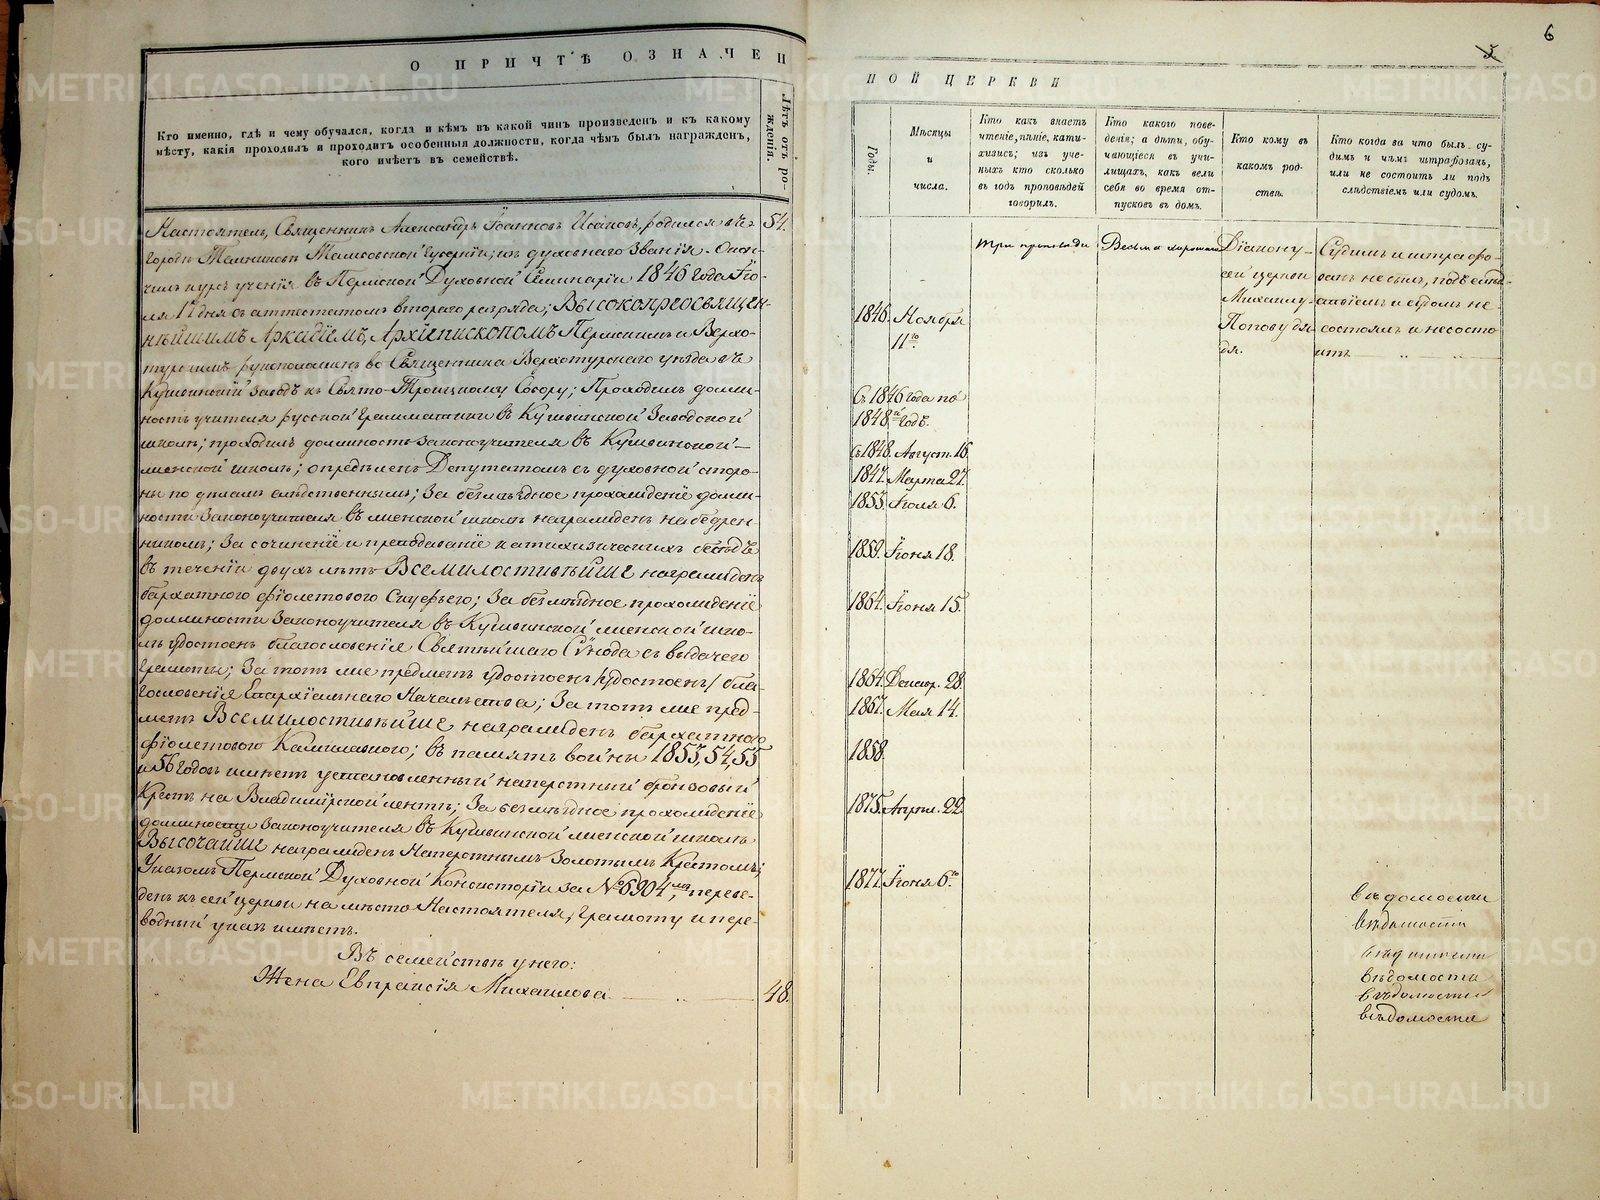 О ПРИЧТѢ ОЗНАЧЕН
Кто именно, гдѣ и чему обучался, когда и кѣмъ въ какой чинъ произведенъ и къ какому
мѣсту, какія проходилъ и проходитъ особенныя должности, когда чѣмъ былъ награжденъ,
кого имѣетъ въ семействѣ.
Лѣтъ отъ ро-
жденія.
Настоятель, Священникъ Александръ Іоанновъ родился въ 54.
городѣ Темниковѣ Тамбовской Губерніи, изъ духовнаго званія. Окон-
чилъ курсъ ученія въ Пермской Духовной Семинаріи 1846 года Ію-
ля дня съ аттестатомъ втораго разряда; Высокопреосвящен-
нѣйшимъ Аркадіемъ, Архіепископомъ Пермскимъ и Верхо-
турскимъ рукоположенъ во Священника Верхотурскаго уѣзда въ
Кушвинскій заводъ къ Свято-Троицкому Собору; Проходилъ долж-
ность учителя русской грамматики въ Кушвинской Заводской
школѣ; проходилъ должность законоучителя въ Кушвинской
женской школѣ; опредѣленъ Депутатомъ съ духовной сторо-
ны по дѣламъ слѣдственнымъ; За безмездное прохожденіе долж-
ности Законоучителя въ женской школѣ награжденъ набедрен-
никомъ; За сочиненіе и преподаваніе катихизическихъ бесѣдъ
въ теченіи двухъ лѣтъ Всемилостивѣйше награжденъ
бархатною фіолетовою Скуфьею; За безмездное прохожденіе
должности Законоучителя въ Кушвинской женской шко-
лѣ удостоенъ благословенія Святѣйшаго Сѵнода съ выдачею
грамоты; За тотъ же предметъ удостоенъ (удостоенъ) бла-
гословенія Епархіальнаго Начальства; За тотъ же пред-
метъ Всемилостивѣйше награжденъ бархатною
фіолетовою Камилавкою; въ память войны 1853, 54, 55
и 56 годовъ имѣетъ установленный наперстный бронзовый
Крестъ на Владимірской лентѣ; За безмездное прохожденіе
должности законоучителя въ Кушвинской женской школѣ
Высочайше награжденъ Наперстнымъ Золотымъ Крестомъ;
Указомъ Пермской Духовной Консисторіи за № 6904, переве-
денъ къ сей церкви на мѣсто Настоятеля, грамоту и пере-
водный указъ имѣетъ.
Въ семействѣ у него:
Жена Евпраксія Михаилова 48.
6
5
НОЙ ЦЕРКВИ
Годы.
Мѣсяцы
и
числа.
Кто какъ знаетъ
чтеніе, пѣніе, кати-
хизисъ; изъ уче-
ныхъ кто сколько
въ годъ проповѣдей
говорилъ.
Кто какого пове-
денія; а дѣти, обу-
чающіеся въ учи-
лищахъ, какъ вели
себя во время от-
пусковъ въ домъ.
Кто кому въ
какомъ род-
ствѣ.
Кто когда за что былъ су-
димъ и чѣмъ штрафованъ,
или не состоитъ ли подъ
слѣдствіемъ или судомъ.
три проповѣди
Весьма хорошаго
Діакону
сей церкви
Михаилу
Попову дя-
дя.
Судимъ и штрафо-
ванъ не былъ, подъ слѣд-
ствіемъ и судомъ не
состоялъ и не состо-
итъ.
1846. Ноября
11го
Съ 1846 года по
1848й годъ.
Съ 1848. Август. 16.
1847. Марта 27.
1853. Іюля 6.
1859. Іюня 18.
1864. Іюня 15.
1864. Декабр. 28.
1867. Мая 14.
1858.
1875. Апрѣл. 22.
1877. Іюня 6го
вѣдомости
вѣдомости
вѣдомости
вѣдомости
вѣдомости
вѣдомости
METRIKI.GASO-URAL.RU